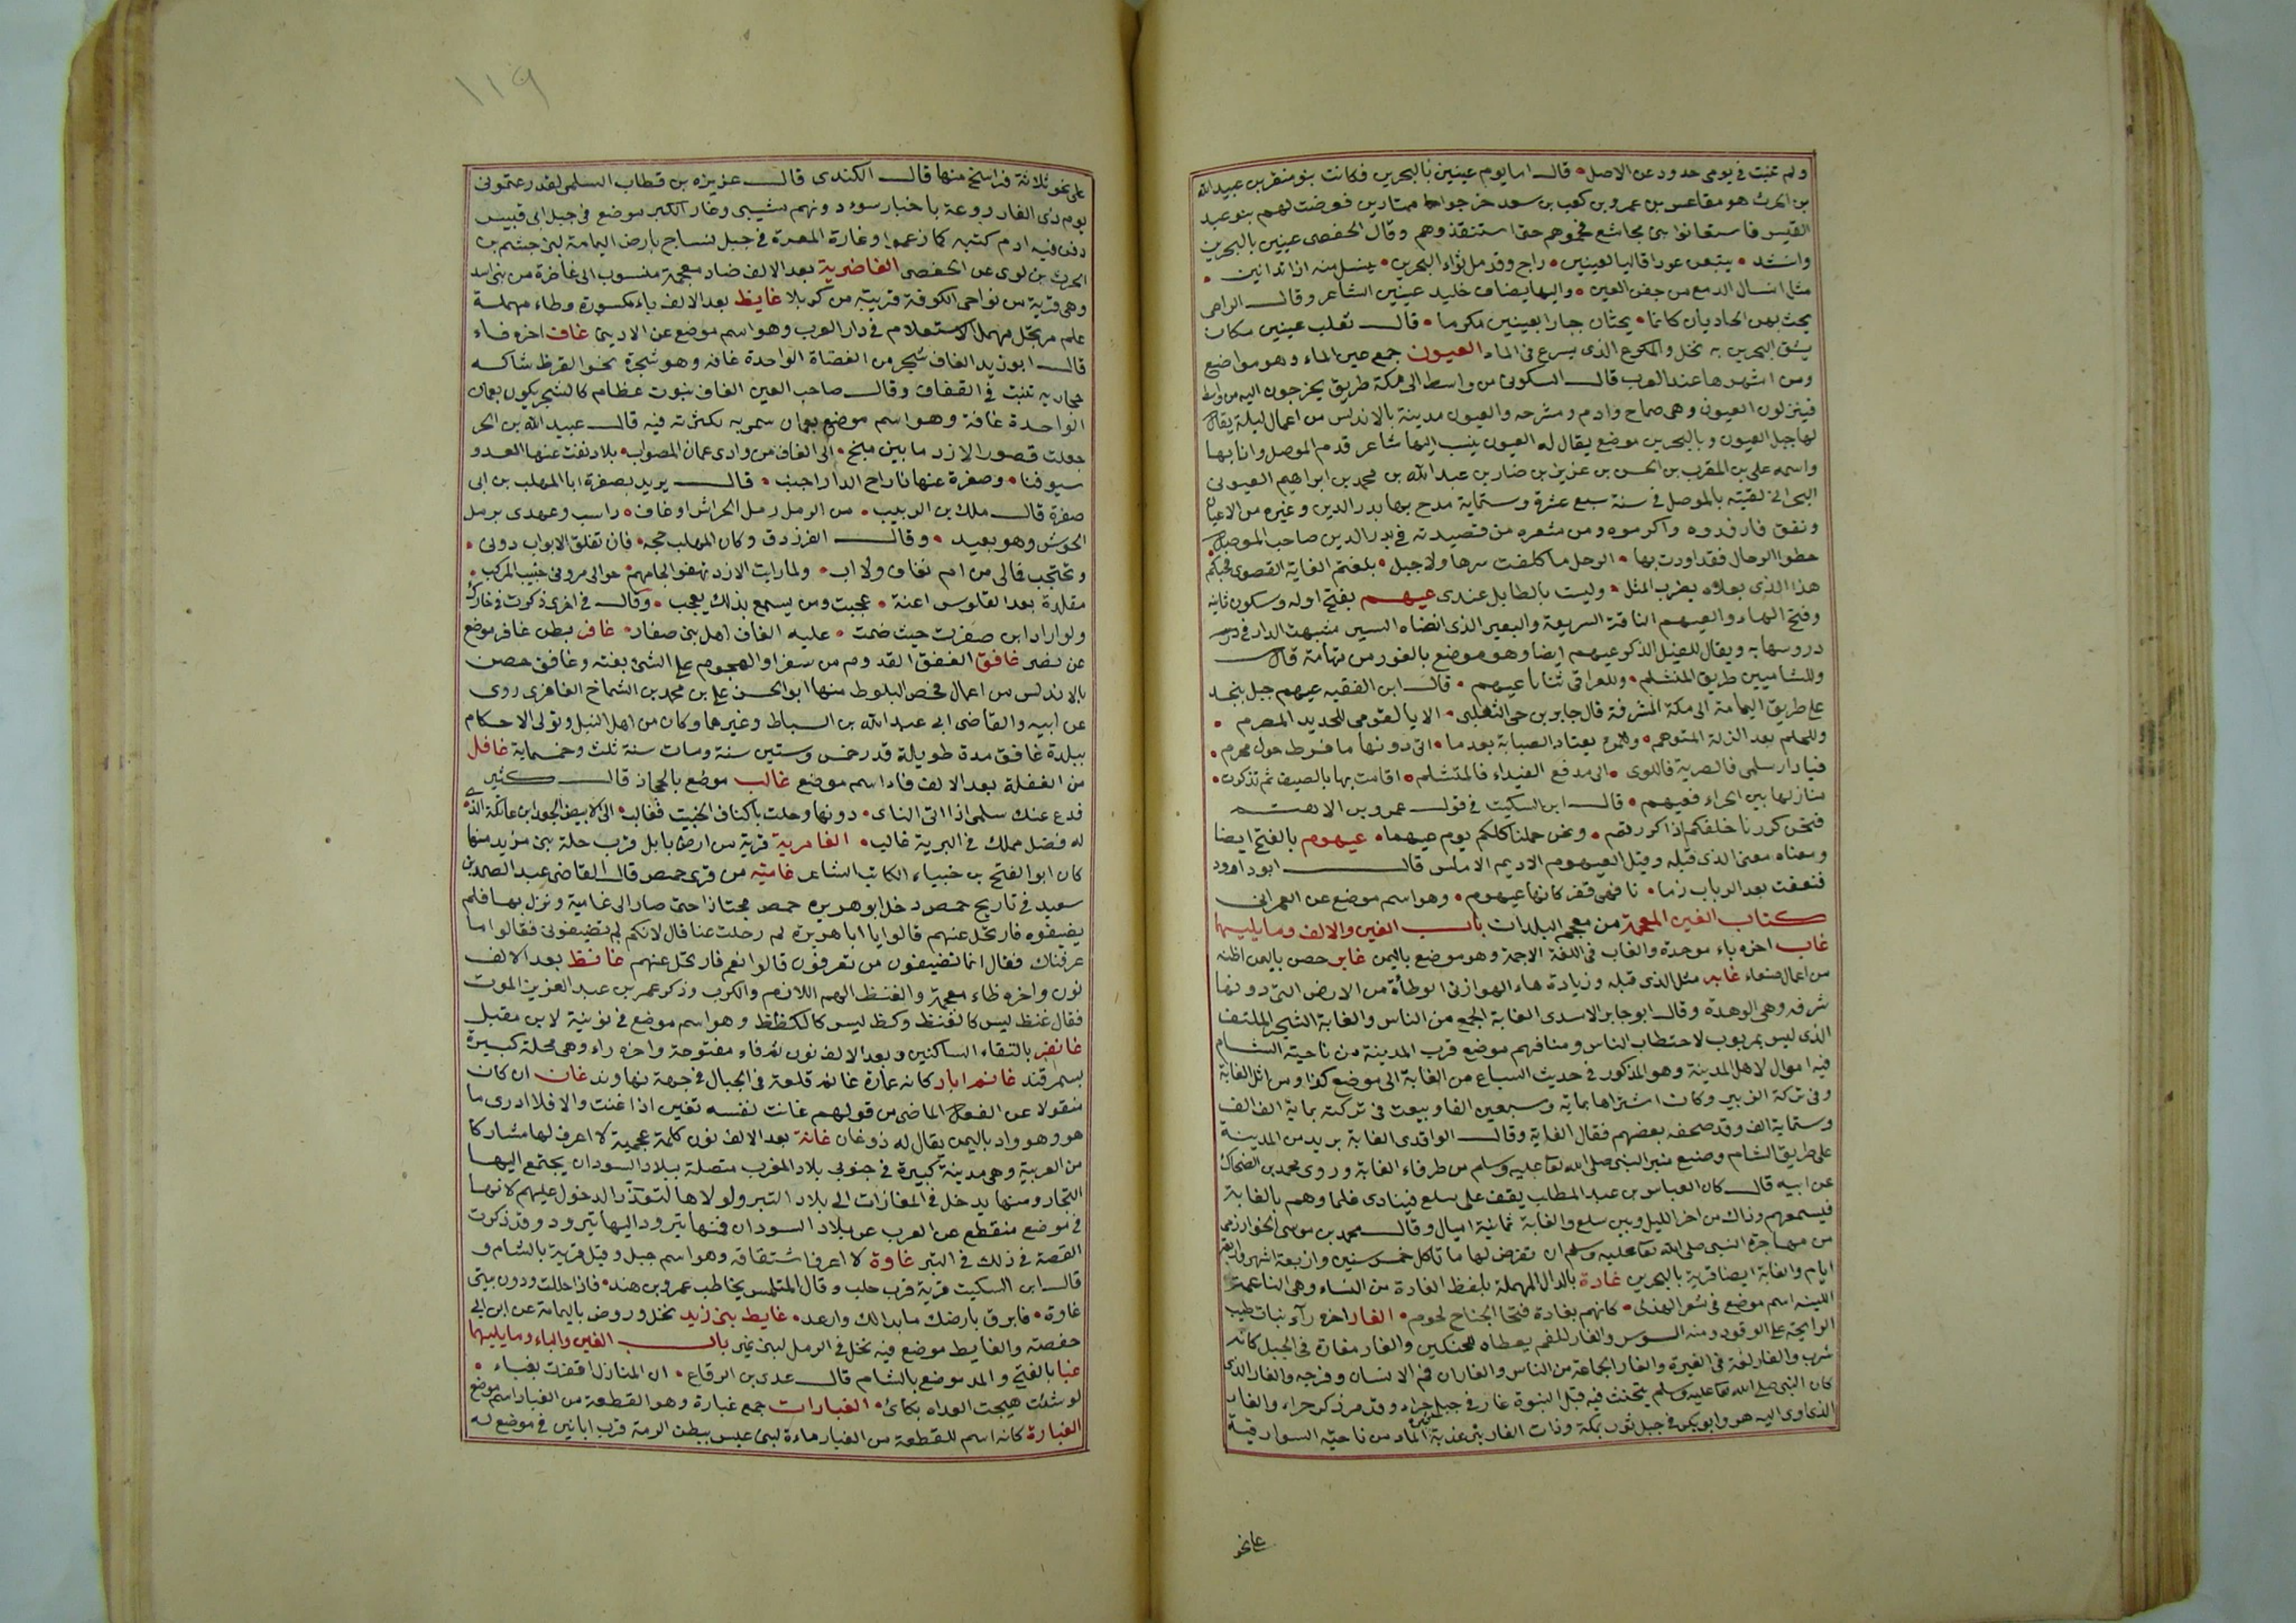 ولم تنبت في يومى حدود عن الاصل • قال اما يوم عينين بالبحرين فكانت بنو منقر بن عبيد الله
بن الحرث هو مقاعس بن عمرو بن كعب بن سعد خرجوا ممتارين فعرضت لهم بنو عبد
القيس فاستعانوا بنى مجاشع فحموهم حتى استنقذوهم وقال الحفصى عينين بالبحرين
وانشد • يتبعن عودا قاليا لعينين • راج وقد مل ثواء البحرين • ينسل منه اذا تدانين •
مثل انسال الدمع من جفن العين • واليها يضاف خليد عينين الشاعر وقال الراعى
يحث بهن الحاديان كانما • يحثان جبارا بعينين مكرعا • قال ثعلب عينين مكان
يشق البحرين به نخل والمكرع الذى يسرع فى الماء العيون جمع عين الماء وهو مواضع
ومن اشهرها عند العرب قال السكونى من واسط الى مكة طريق يخرجون اليه من واسط
فينزلون العيون وهى صماح وادم ومشرجه والعيون مدينة بالاندلس من اعمال لبلة يقال
لها جبل العيون وبالبحرين موضع يقال له العيون ينسب اليها شاعر قدم الموصل وانا بها
واسمه على بن المقرب بن الحسن بن عزيز بن ضبار بن عبد الله بن محمد بن ابراهيم العيونى
البحرانى لقيته بالموصل فى سنة سبع عشرة وستماية مدح بها بدر الدين وغيره من الاعيان
ونفق فارفدوه واكرموه ومن شعره من قصيدته فى بدر الدين صاحب الموصل
حطوا الرحال فقد اودت بها • الرحل ما كلفت سرها ولا جبل • بلغتم الغاية القصوى فحبكم
هذا الذى بعلاه يضرب المثل • وليست بالطايل عندى عيهم بفتح اوله وسكون ثانيه
وفتح الهاء والعيهم الناقة السريعة والبعير الذى انضاه السير شبهت الدار فى درس
دروسها به ويقال للفيل الذكر عيهم ايضا وهو موضع بالغور من تهامة قال
وللشاميين طريق المنشلم • وللعراق ثنايا عيهم • قال ابن الفقيه عيهم جبل بنجد
على طريق اليمامة الى مكة المشرفة قال جابر بن حى التغلبى • الا يا لقومى للجديد المصرم •
وللحلم بعد الزلة المتوهم • وللمرء يعتاد الصبابة بعد ما • اتى دونها ما فرط حول مجرم •
فيا دار سلمى فالصريمة فاللوى • الى مدفع القيداء فالمتشلم • اقامت بها بالصيف ثم تذكرت •
منازلها بين الجراء فعيهم • قال ابن السكيت فى قول عمرو بن الاهتم
فنحن كررنا خلفكم اذا كررتم • ونحن حملنا كلكم يوم عيهما • عيهوم بالفتح ايضا
ومعناه معنى الذى قبله وقيل العيهوم الاديم الاملس قال ابو دواد
فتعفت بعد الرباب زما • نا فهى قفر كانها عيهوم • وهو اسم موضع عن العمرانى
كتاب الغين المعجمة من معجم البلدان باب الغين والالف وما يليهما
غاب اخره باء موحدة والغاب فى اللغة الاجمة وهو موضع باليمن غابر حصن باليمن اظنه
من اعمال صنعاء غابه مثل الذى قبله وزيادة هاء الهوازنى الوطأة من الارض التى دونها
شرفه وهى الوهدة وقال ابو جابر الاسدى الغابة الجمع من الناس والغابة الشجر الملتف
الذى ليس بمربوب لاحتطاب الناس ومنافعهم موضع قرب المدينة من ناحية الشام
فيه اموال لاهل المدينة وهو المذكور فى حديث السباع من الغابة الى موضع كذا ومن اثل الغابة
وفى تركة الزبير وكان اشتراها بماية وسبعين الفا وبيعت فى تركته بماية الف الف
وستماية الف وقد صحفه بعضهم فقال الغاية وقال الواقدى الغابة بريد من المدينة
على طريق الشام وصنع منبر النبى صلى الله تعا عليه وسلم من طرفاء الغابة وروى محمد بن الضحاك
عن ابيه قال كان العباس بن عبد المطلب يقف على سلع فينادى غلمانه وهم بالغابة
فيسمعهم وذاك من اخر الليل وبين سلع والغابة ثمانية اميال وقال محمد بن موسى الخوارزمى
من مهاجرة النبى صلى الله تعا عليه وسلم ان تفرض لها ما تاكل خمس سنين واربعة اشهر واربعة
ايام والغابة ايضا قرية بالبحرين غادة بالدال المهملة بلفظ الغادة من النساء وهى الناعمة
اللينه اسم موضع فى شعر الهذلى • كانهم بغادة فتخا الجناح لحوم • الغار اخره رآء نبات طيب
الرايحة على الوقود ومنه السوس والغار للفم يعطاه للحنكين والغار مغارة فى الجبل كانه
سرب والغار لغة فى الغيرة والغار الجماعة من الناس والغاران فم الانسان وفرجه والغار الذى
كان النبى صلى الله تعا عليه وسلم يتحنث فيه قبل النبوة غار فى جبل حراء وقد مر ذكر حراء والغار
الذى اوى اليه هو وابو بكر فى جبل ثور بمكة وذات الغار بئر عذبة الماء من ناحية السوارقية
على نحو
١١٩
على نحو ثلاثة فراسخ منها قال الكندى قال عزيزه بن قطاب السلمى لقد رعتمونى
يوم ذى الغار روعة باخبار سوء دونهم مشيبى وغار الكنز موضع فى جبل ابى قبيس
دفن فيه ادم كتبه كما زعموا وغارة المعرة فى جبل نساج بارض اليمامة لبنى جشم بن
الحرث بن لوى عن الحفصى الغاضرية بعد الالف ضاد معجمة منسوب الى غاضرة من بنى اسد
وهى قرية من نواحى الكوفة قريبة من كربلا غايط بعد الالف ياء مكسورة وطاء مهملة
علم مرتجل مهمل الاستعلام فى دار العرب وهو اسم موضع عن الاديبى غاف اخره فاء
قال ابو زيد الغاف شجر من العضاة الواحدة غافه وهو شجرة نحو القرظ شاكه
حجازيه تنبت فى القفاف وقال صاحب العين الغاف ينبوت عظام كالشجر يكون بعمان
الواحدة غافة وهو اسم موضع بعمان سمى به لكثرته فيه قال عبيد الله بن الحر
جعلت قصور الازد ما بين منبج • الى الغاف من وادى عمان المصوب • بلاد نفت عنها العدو
سيوفنا • وصفرة عنها نازح الدار اجنب • قال يريد بصفرة ابا المهلب بن ابى
صفرة قال ملك بن الريب • من الرمل رمل الحوش او غاف • راسب وعهدى برمل
الحوش وهو بعيد • وقال الفرزدق وكان المهلب حجبه • فان تغلق الابواب دونى •
وتحتجب فما لى من ام بغاف ولا اب • ولما رايت الازد تهفو لحاهم • حوالى مزونى خبيث المركب •
مقلدة بعد القلوس اعنة • عجبت ومن يسمع بذلك يعجب • وقال فى اخرى ذكرت فى خارك
ولو ارادا بن صفرت حيث ضمت • عليه الغاف اهل بنى صفار • غافر بطن غافر موضع
عن نصر غافق الغفق القدوم من سفر او الهجوم على الشئ بغته وغافق حصن
بالاندلس من اعمال فحص البلوط منها ابو الحسن على بن محمد بن الشماخ الغافقى روى
عن ابيه والقاضى ابى عبد الله بن السباط وغيرهما وكان من اهل النبل وتولى الاحكام
ببلدة غافق مدة طويلة قدر خمس وستين سنة ومات سنة ثلث وخمسماية غافل
من الغفلة بعد الالف فاء اسم موضع غالب موضع بالحجاز قال كثير
فدع عنك سلمى اذا اتى الناى • دونها وحلت باكناف الخبيت فغالب • الى الابيض الجعد ابن عاتكة الذى
له فضل مملك فى البرية غالب • الغامرية قرية من ارض بابل قرب حلة بنى مزيد منها
كان ابو الفتح بن خبياء الكاتب الشاعر غاميه من قرى حمص قال القاضى عبد الصمد بن
سعيد فى تاريخ حمص دخل ابو هريرة حمص مجتازا حتى صار الى غامية ونزل بها فلم
يضيفوه فارتحل عنهم قالوا يا ابا هريرة لم رحلت عنا قال لانكم لم تضيفونى فقالوا ما
عرفناك فقال انما تضيفون من تعرفون قالوا نعم فارتحل عنهم غانظ بعد الالف
نون واخره ظاء معجمة والغنظ الهم اللازم والكرب وذكر عمر بن عبد العزيز الموت
فقال غنظ ليس كالغنظ وكظ ليس كالكظ وهو اسم موضع فى نونية لابن مقبل
غانفر بالتقاء الساكنين وبعد الالف نون ثم فاء مفتوحة واخره راء وهى محلة كبيرة
بسمرقند غانم اباد كانه عمارة غانم قلعة فى الجبال فى جهة نهاوند غان ان كان
منقولا عن الفعل الماضى من قولهم غانت نفسه تغين اذا غنت والا فلا ادرى ما
هو وهو واد باليمن يقال له ذو غان غانة بعد الالف نون كلمة عجمية لا اعرف لها مشاركا
من العربية وهى مدينة كبيرة فى جنوبى بلاد المغرب متصلة ببلاد السودان يجتمع اليها
التجار ومنها يدخل فى المفازات الى بلاد التبر ولولاها لتعذر الدخول عليهم لانها
فى موضع منقطع عن الغرب عن بلاد السودان فمنها يتزود اليها يتزود وقد ذكرت
القصة فى ذلك فى التبر غاوة لا اعرف اشتقاقه وهو اسم جبل وقيل قرية بالشام و
قال ابن السكيت قرية قرب حلب وقال المتلمس يخاطب عمرو بن هند • فاذا حللت ودون بيتى
غاوة • فابرق بارضك ما بدا لك وارعد • غايط بنى زيد نخل وروض باليمامة عن ابن ابى
حفصة والغايط موضع فيه نخل فى الرمل لبنى نمير باب الغين والباء وما يليهما
غبا بالفتح والمد موضع بالشام قال عدى بن الرقاع • ان المنازل اقفرت بغباء •
لو شئت هيجت الغداه بكائى • الغبارات جمع غبارة وهو القطعة من الغبار اسم موضع
الغبارة كانه اسم للقطعة من الغبار ماءة لبنى عبس ببطن الرمة قرب ابانين فى موضع له